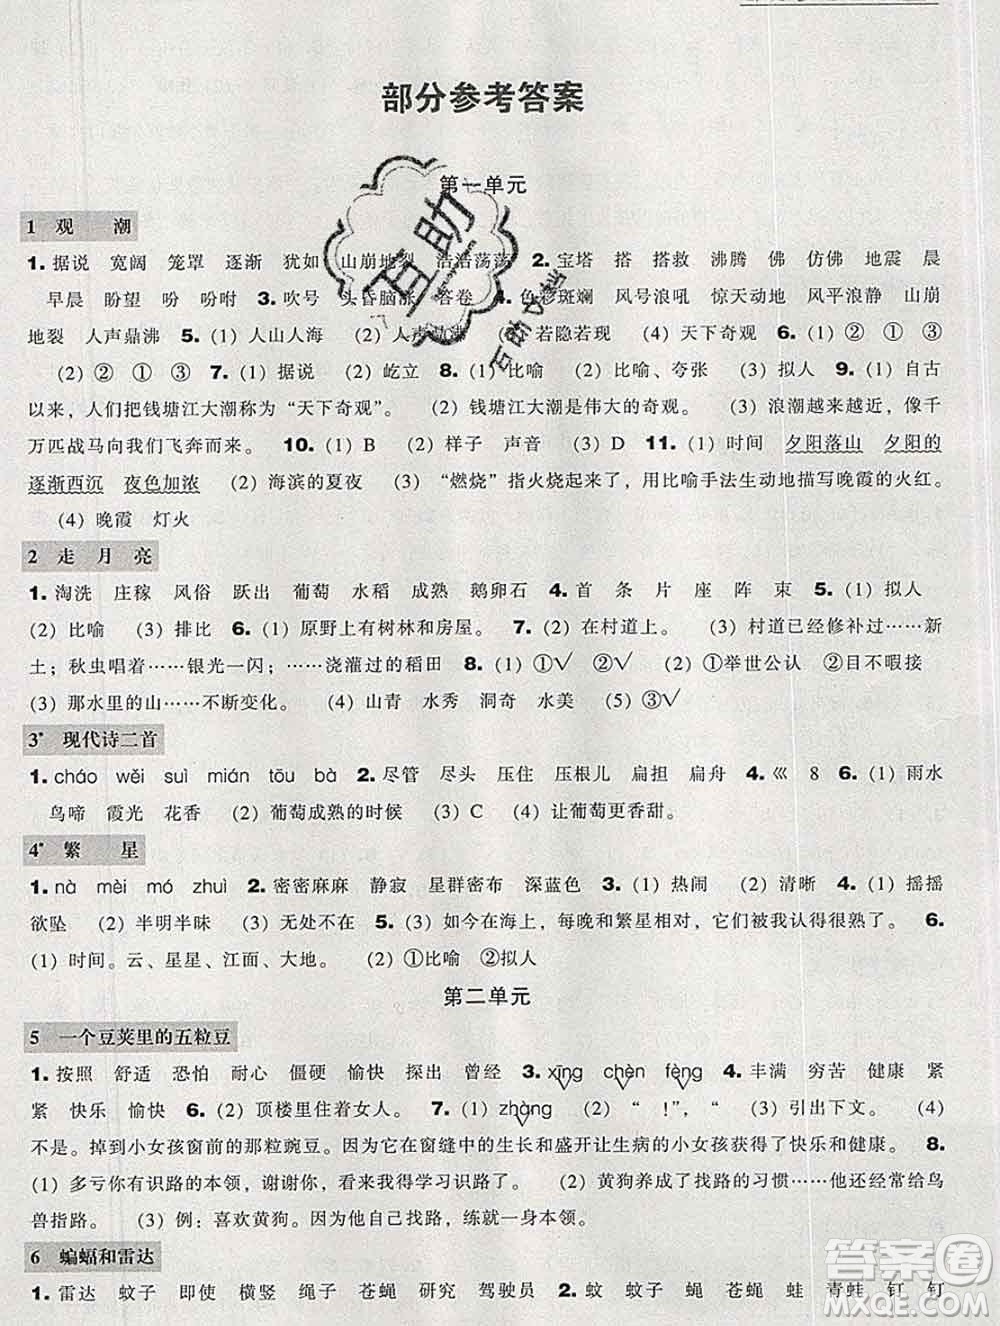 部分参考答案
第一单元
1 观 潮
1. 据说 宽阔 笼罩 逐渐 犹如 山崩地裂 浩浩荡荡 2. 宝塔 搭 搭救 沸腾 佛 仿佛 地震 晨
早晨 盼望 吩 吩咐 3. 吹号 头昏脑涨 答卷 5. 色彩斑斓 风号浪吼 惊天动地 风平浪静 山崩
地裂 人声鼎沸 5. (1) 人山人海 (2) 人声鼎沸 若隐若现 (4) 天下奇观 6. (1) ② ① ③
(2) ② ① ③ 7. (1) 据说 (2) 屹立 8. (1) 比喻 (2) 比喻、夸张 (3) 拟人 9. (1) 自古
以来，人们把钱塘江大潮称为“天下奇观”。 (2) 钱塘江大潮是伟大的奇观。 (3) 浪潮越来越近，像千
万匹战马向我们飞奔而来。 10. (1) B (2) 样子 声音 (3) D 11. (1) 时间 夕阳落山 夕阳的
逐渐西沉 夜色加浓 (2) 海滨的夏夜 (3) “燃烧”指火烧起来了，用比喻手法生动地描写晚霞的火红。
(4) 晚霞 灯火
2 走 月 亮
1. 淘洗 庄稼 风俗 跃出 葡萄 水稻 成熟 鹅卵石 4. 首 条 片 座 阵 束 5. (1) 拟人
(2) 比喻 (3) 排比 6. (1) 原野上有树林和房屋。 7. (2) 在村道上。 (3) 村道已经修补过……新
土；秋虫唱着……银光一闪；……浇灌过的稻田 8. (1) ①√ ②√ (2) ①举世公认 ②目不暇接
(3) 那水里的山……不断变化。 (4) 山青 水秀 洞奇 水美 (5) ③√
3* 现代诗二首
1. cháo wěi suì mián tōu bà 2. 尽管 尽头 压住 压根儿 扁担 扁舟 4. 巛 8 6. (1) 雨水
鸟啼 霞光 花香 (2) 葡萄成熟的时候 (3) C (4) 让葡萄更香甜。
4* 繁 星
1. nà mèi mó zhuì 2. 密密麻麻 静寂 星群密布 深蓝色 3. (1) 热闹 (2) 清晰 4. (1) 摇摇
欲坠 (2) 半明半昧 (3) 无处不在 5. (3) 如今在海上，每晚和繁星相对，它们被我认得很熟了。 6.
(1) 时间。云、星星、江面、大地。 (2) ①比喻 ②拟人
第二单元
5 一个豆荚里的五粒豆
1. 按照 舒适 恐怕 耐心 僵硬 愉快 探出 曾经 3. xīng chèn fèng 4. 丰满 穷苦 健康 紧
紧 快乐 愉快 6. (2) 顶楼里住着女人。 7. (1) zhàng (2) “ ！”，“ (3) 引出下文。 (4)
不是。掉到小女孩窗前的那粒豌豆。因为它在窗缝中的生长和盛开让生病的小女孩获得了快乐和健康。 8.
(1) 多亏你有识路的本领，谢谢你，看来我得学习识路了。 (2) 黄狗养成了找路的习惯……他还经常给鸟
兽指路。 (3) 例：喜欢黄狗。因为他自己找路，练就一身本领。
6 蝙蝠和雷达
1. 雷达 蚊子 即使 横竖 绳子 苍蝇 研究 驾驶员 2. 蚊 蚊子 蝇 苍蝇 蛙 青蛙 钉 钉
互助
答案圈
MXQE.COM